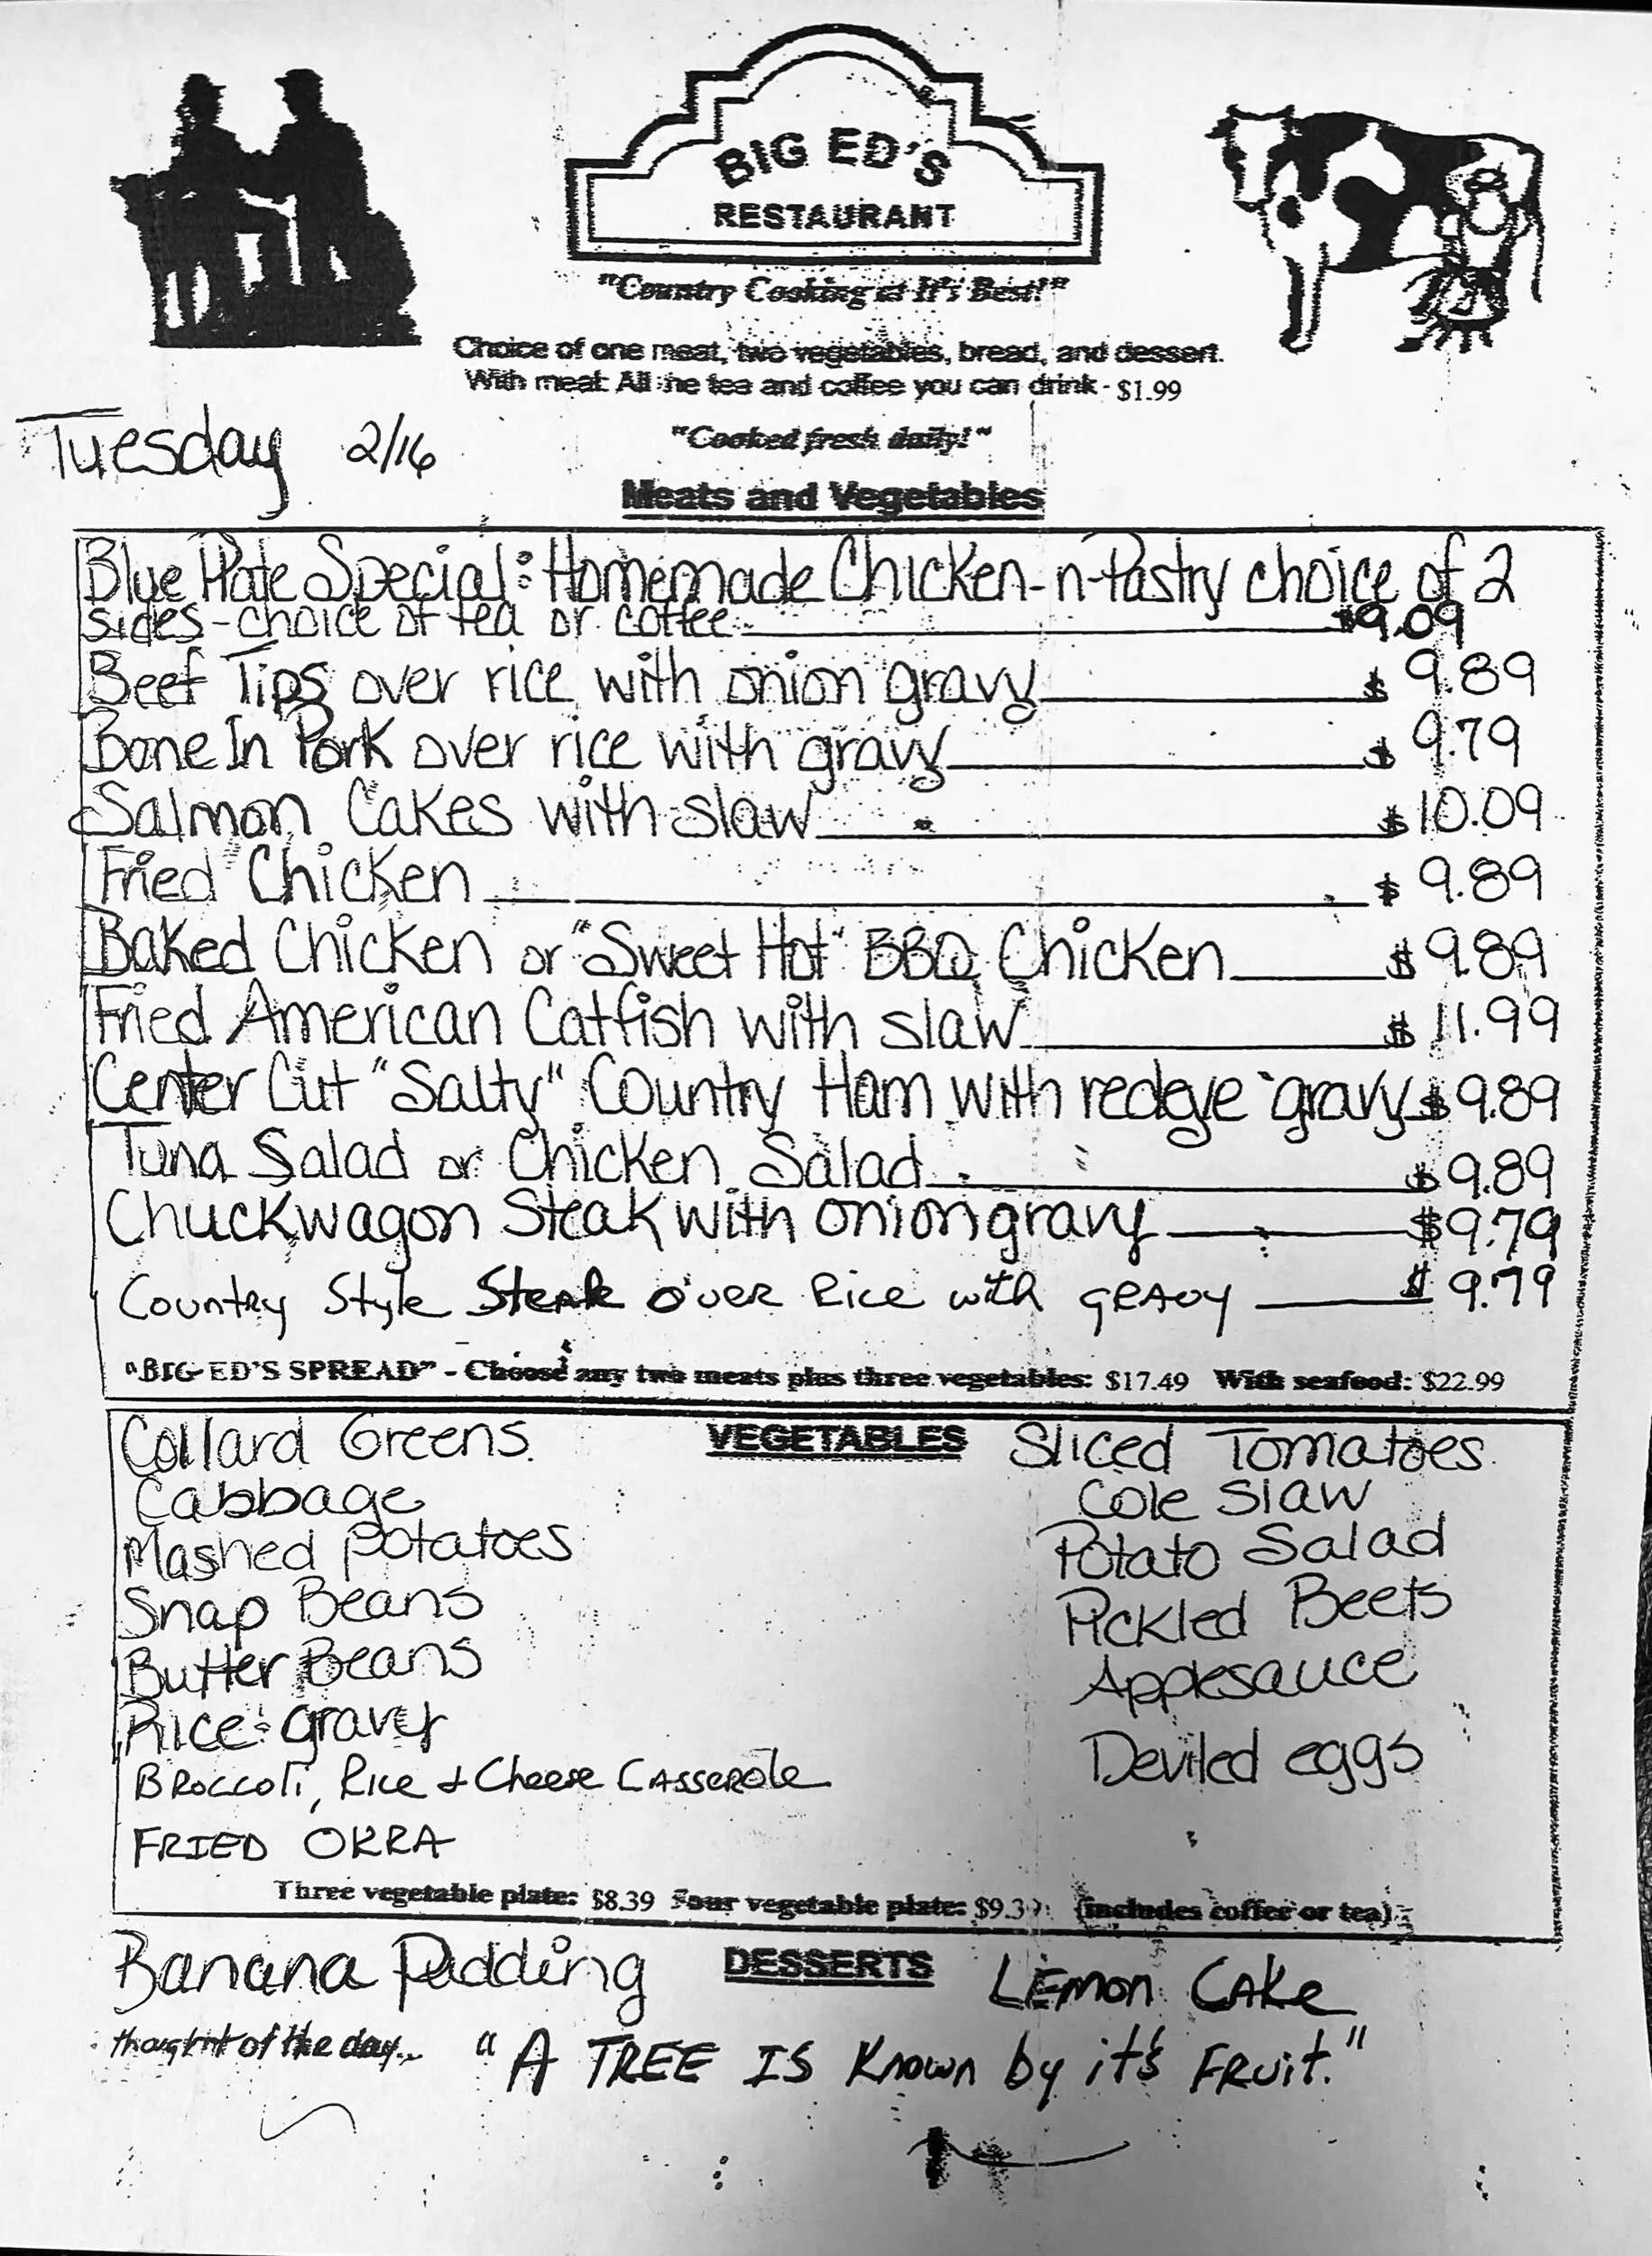 BIG ED'S
RESTAURANT
"Country Cooking at It's Best!"
Choice of one meat, two vegetables, bread, and dessert.
With meal: All the tea and coffee you can drink - $1.99
Tuesday 2/16
"Cooked fresh daily!"
Meats and Vegetables
Blue Plate Special: Homemade Chicken-n-Pastry choice of 2
sides-choice of tea or coffee $9.09
Beef Tips over rice with onion gravy $ 9.89
Bone In Pork over rice with gravy $ 9.79
Salmon Cakes with slaw $ 10.09
Fried Chicken $ 9.89
Baked Chicken or "Sweet Hot" BBQ Chicken $ 9.89
Fried American Catfish with slaw $ 11.99
Center Cut "Salty" Country Ham with redeye gravy $ 9.89
Tuna Salad or Chicken Salad $ 9.89
Chuckwagon Steak with onion gravy $9.79
Country Style Steak over Rice with gravy $ 9.79
"BIG ED'S SPREAD" - Choose any two meats plus three vegetables: $17.49 With seafood: $22.99
VEGETABLES
Collard Greens
Cabbage
Mashed Potatoes
Snap Beans
Butter Beans
Rice - gravy
Broccoli, Rice & Cheese Casserole
FRIED OKRA
Sliced Tomatoes
Cole Slaw
Potato Salad
Pickled Beets
Applesauce
Deviled eggs
Three vegetable plate: $8.39 Four vegetable plate: $9.39 (includes coffee or tea)
DESSERTS
Banana Pudding
Lemon Cake
thought of the day... "A TREE IS Known by it's FRuit."